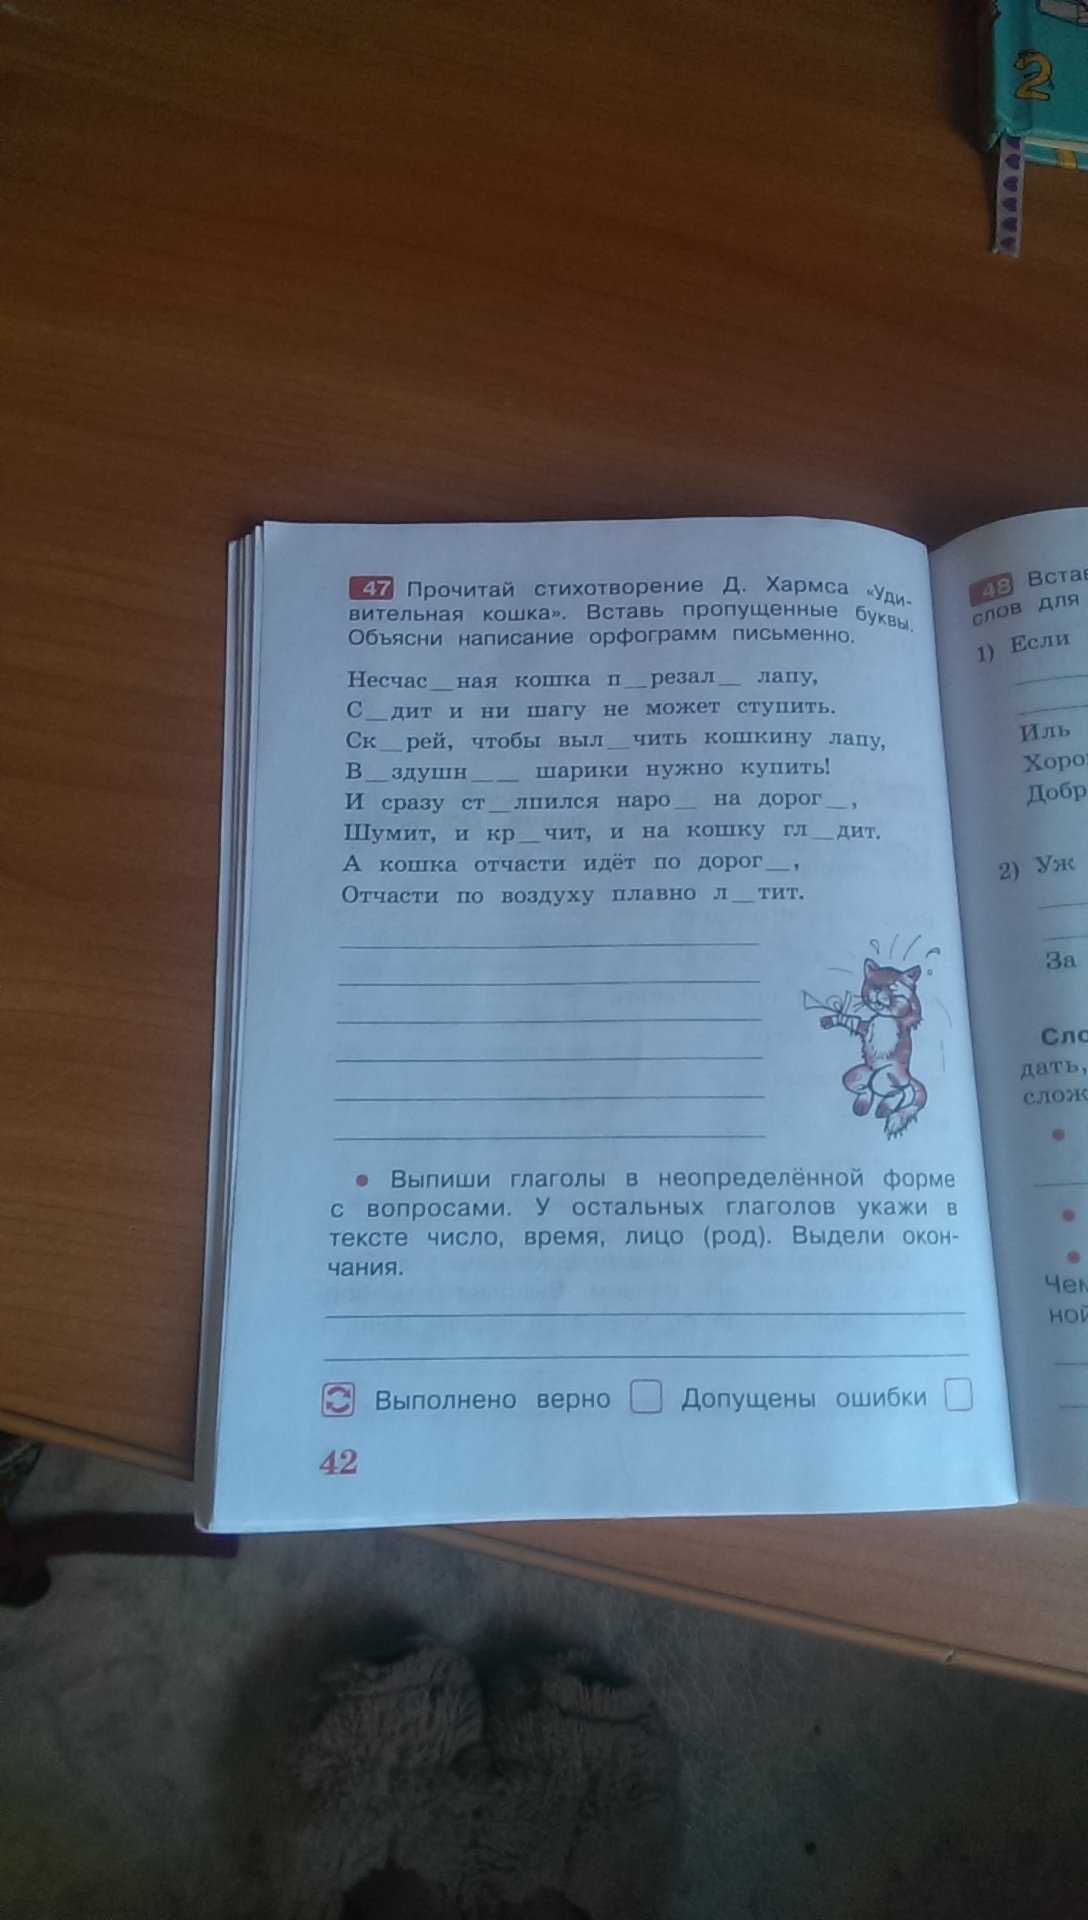 2
47 Прочитай стихотворение Д. Хармса «Уди-
вительная кошка». Вставь пропущенные буквы.
Объясни написание орфограмм письменно.
Несчас__ная кошка п__резал__ лапу,
С__дит и ни шагу не может ступить.
Ск__рей, чтобы выл__чить кошкину лапу,
В__здушн__ __ шарики нужно купить!
И сразу ст__лпился наро__ на дорог__,
Шумит, и кр__чит, и на кошку гл__дит.
А кошка отчасти идёт по дорог__,
Отчасти по воздуху плавно л__тит.
• Выпиши глаголы в неопределённой форме
с вопросами. У остальных глаголов укажи в
тексте число, время, лицо (род). Выдели окон-
чания.
Выполнено верно Допущены ошибки
42
48 Встав
слов для
1) Если
Иль
Хоро
Добр
2) Уж
За
Сло
дать,
слож
•
•
•
Чем
ной